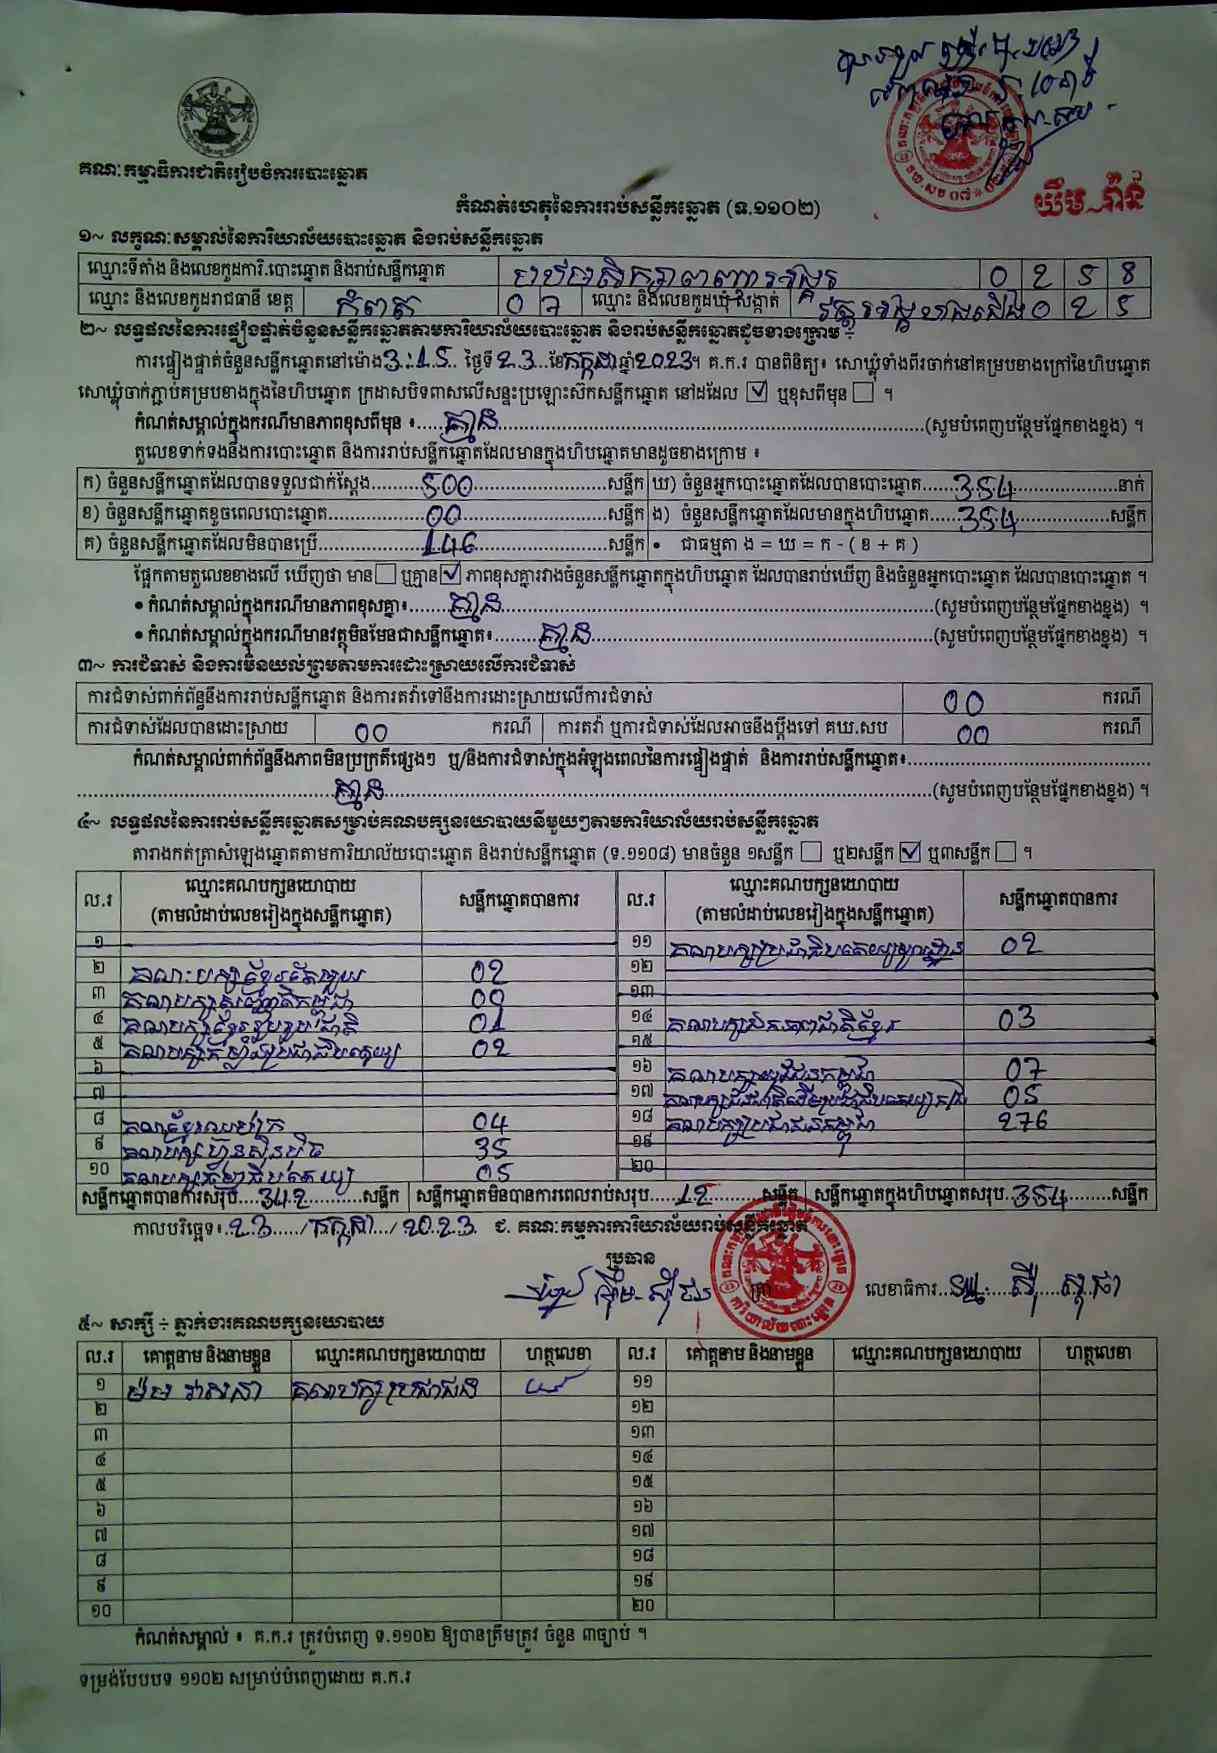 គណៈកម្មាធិការជាតិរៀបចំការបោះឆ្នោត
យឹម រ៉ាន់
កំណត់ហេតុនៃការរាប់សន្លឹកឆ្នោត (ទ.១១០២)
១~ លក្ខណៈសម្គាល់នៃការិយាល័យបោះឆ្នោត និងរាប់សន្លឹកឆ្នោត
ឈ្មោះទីតាំង និងលេខកូដការិ.បោះឆ្នោត និងរាប់សន្លឹកឆ្នោត 0 2 5 8
ឈ្មោះ និងលេខកូដរាជធានី ខេត្ត កំពត 0 7 ឈ្មោះ និងលេខកូដឃុំ-សង្កាត់ 0 2 5
២~ លទ្ធផលនៃការផ្ទៀងផ្ទាត់ចំនួនសន្លឹកឆ្នោតតាមការិយាល័យបោះឆ្នោត និងរាប់សន្លឹកឆ្នោតដូចខាងក្រោម ÷
ការផ្ទៀងផ្ទាត់ចំនួនសន្លឹកឆ្នោតនៅម៉ោង 3:15 ថ្ងៃទី 23 ខែ កក្កដា ឆ្នាំ 2023។ គ.ក.រ បានពិនិត្យ៖ សោឃ្លុំទាំងពីរចាក់នៅគម្របខាងក្រៅនៃហិបឆ្នោត
សោឃ្លុំចាក់ភ្ជាប់គម្របខាងក្នុងនៃហិបឆ្នោត ក្រដាសបិទពាសលើសន្ទះប្រឡោះស៊កសន្លឹកឆ្នោត នៅដដែល ☑ ឬខុសពីមុន ☐ ។
កំណត់សម្គាល់ក្នុងករណីមានភាពខុសពីមុន ៖ គ្មាន (សូមបំពេញបន្ថែមផ្នែកខាងខ្នង) ។
តួលេខទាក់ទងនឹងការបោះឆ្នោត និងការរាប់សន្លឹកឆ្នោតដែលមានក្នុងហិបឆ្នោតមានដូចខាងក្រោម ៖
ក) ចំនួនសន្លឹកឆ្នោតដែលបានទទួលជាក់ស្តែង 500 សន្លឹក ឃ) ចំនួនអ្នកបោះឆ្នោតដែលបានបោះឆ្នោត 354 នាក់
ខ) ចំនួនសន្លឹកឆ្នោតខូចពេលបោះឆ្នោត 00 សន្លឹក ង) ចំនួនសន្លឹកឆ្នោតដែលមានក្នុងហិបឆ្នោត 354 សន្លឹក
គ) ចំនួនសន្លឹកឆ្នោតដែលមិនបានប្រើ 146 សន្លឹក • ជាធម្មតា ង = ឃ = ក - ( ខ + គ )
ផ្អែកតាមតួលេខខាងលើ ឃើញថា មាន ☐ ឬគ្មាន ☑ ភាពខុសគ្នារវាងចំនួនសន្លឹកឆ្នោតក្នុងហិបឆ្នោត ដែលបានរាប់ឃើញ និងចំនួនអ្នកបោះឆ្នោត ដែលបានបោះឆ្នោត ។
• កំណត់សម្គាល់ក្នុងករណីមានភាពខុសគ្នា៖ គ្មាន (សូមបំពេញបន្ថែមផ្នែកខាងខ្នង) ។
• កំណត់សម្គាល់ក្នុងករណីមានវត្ថុមិនមែនជាសន្លឹកឆ្នោត៖ គ្មាន (សូមបំពេញបន្ថែមផ្នែកខាងខ្នង) ។
៣~ ការជំទាស់ និងការមិនយល់ព្រមតាមការដោះស្រាយលើការជំទាស់
ការជំទាស់ពាក់ព័ន្ធនឹងការរាប់សន្លឹកឆ្នោត និងការតវ៉ាទៅនឹងការដោះស្រាយលើការជំទាស់ 00 ករណី
ការជំទាស់ដែលបានដោះស្រាយ 00 ករណី ការតវ៉ា ឬការជំទាស់ដែលអាចនឹងប្តឹងទៅ គឃ.សប 00 ករណី
កំណត់សម្គាល់ពាក់ព័ន្ធនឹងភាពមិនប្រក្រតីផ្សេងៗ ឬ/និងការជំទាស់ក្នុងអំឡុងពេលនៃការផ្ទៀងផ្ទាត់ និងការរាប់សន្លឹកឆ្នោត៖
គ្មាន (សូមបំពេញបន្ថែមផ្នែកខាងខ្នង) ។
៤~ លទ្ធផលនៃការរាប់សន្លឹកឆ្នោតសម្រាប់គណបក្សនយោបាយនីមួយៗតាមការិយាល័យរាប់សន្លឹកឆ្នោត
តារាងកត់ត្រាសំឡេងឆ្នោតតាមការិយាល័យបោះឆ្នោត និងរាប់សន្លឹកឆ្នោត (ទ.១១០៨) មានចំនួន ១សន្លឹក ☐ ឬ២សន្លឹក ☑ ឬ៣សន្លឹក ☐ ។
ល.រ ឈ្មោះគណបក្សនយោបាយ (តាមលំដាប់លេខរៀងក្នុងសន្លឹកឆ្នោត) សន្លឹកឆ្នោតបានការ ល.រ ឈ្មោះគណបក្សនយោបាយ (តាមលំដាប់លេខរៀងក្នុងសន្លឹកឆ្នោត) សន្លឹកឆ្នោតបានការ
១ ១១ 02
២ គណៈបក្សខ្មែរតែមួយ 02 ១២
៣ 00 ១៣
៤ គណបក្សខ្មែររួបរួមជាតិ 01 ១៤ គណបក្សឯកភាពជាតិខ្មែរ 03
៥ 02 ១៥
៦ ១៦ គណបក្សយុវជនកម្ពុជា 07
៧ ១៧ 05
៨ 04 ១៨ គណបក្សប្រជាជនកម្ពុជា 276
៩ គណបក្សហ៊្វុនស៊ិនប៉ិច 35 ១៩
១០ 05 ២០
សន្លឹកឆ្នោតបានការសរុប 342 សន្លឹក សន្លឹកឆ្នោតមិនបានការពេលរាប់សរុប 12 សន្លឹក សន្លឹកឆ្នោតក្នុងហិបឆ្នោតសរុប 354 សន្លឹក
កាលបរិច្ឆេទ៖ 23 / កក្កដា / 2023 ជ. គណៈកម្មការការិយាល័យរាប់សន្លឹកឆ្នោត
ប្រធាន
លេខាធិការ ស៊ី សុផា
៥~ សាក្សី ÷ ភ្នាក់ងារគណបក្សនយោបាយ
ល.រ គោត្តនាម និងនាមខ្លួន ឈ្មោះគណបក្សនយោបាយ ហត្ថលេខា ល.រ គោត្តនាម និងនាមខ្លួន ឈ្មោះគណបក្សនយោបាយ ហត្ថលេខា
១ ម៉ម វាសនា គណបក្សប្រជាជន ១១
២ ១២
៣ ១៣
៤ ១៤
៥ ១៥
៦ ១៦
៧ ១៧
៨ ១៨
៩ ១៩
១០ ២០
កំណត់សម្គាល់ ៖ គ.ក.រ ត្រូវបំពេញ ទ.១១០២ ឱ្យបានត្រឹមត្រូវ ចំនួន ៣ច្បាប់ ។
ទម្រង់បែបបទ ១១០២ សម្រាប់បំពេញដោយ គ.ក.រ